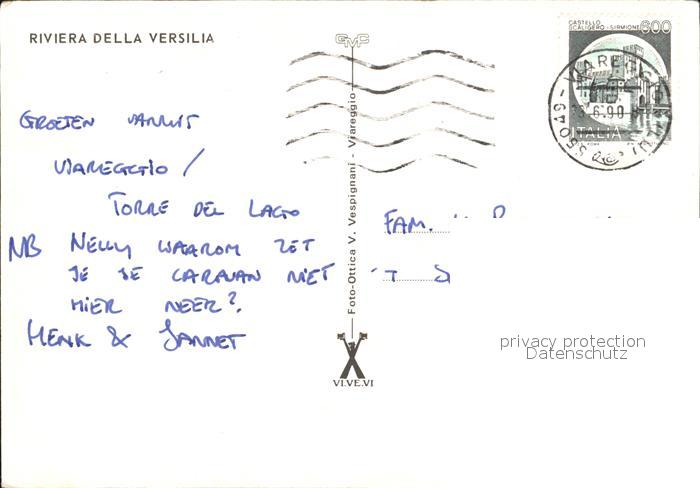 RIVIERA DELLA VERSILIA
GMC
CASTELLO
SCALIGERO - SIRMIONE 600
ITALIA
55049 - VIAREGGIO
6.90
GROETEN VANUIT
VIAREGGIO /
TORRE DEL LAGO
NB NELLY WAAROM ZET
JE DE CARAVAN NIET
HIER NEER?
HENK & JANNET
FAM.
Foto-Ottica V. Vespignani - Viareggio
VI.VE.VI
privacy protection
Datenschutz